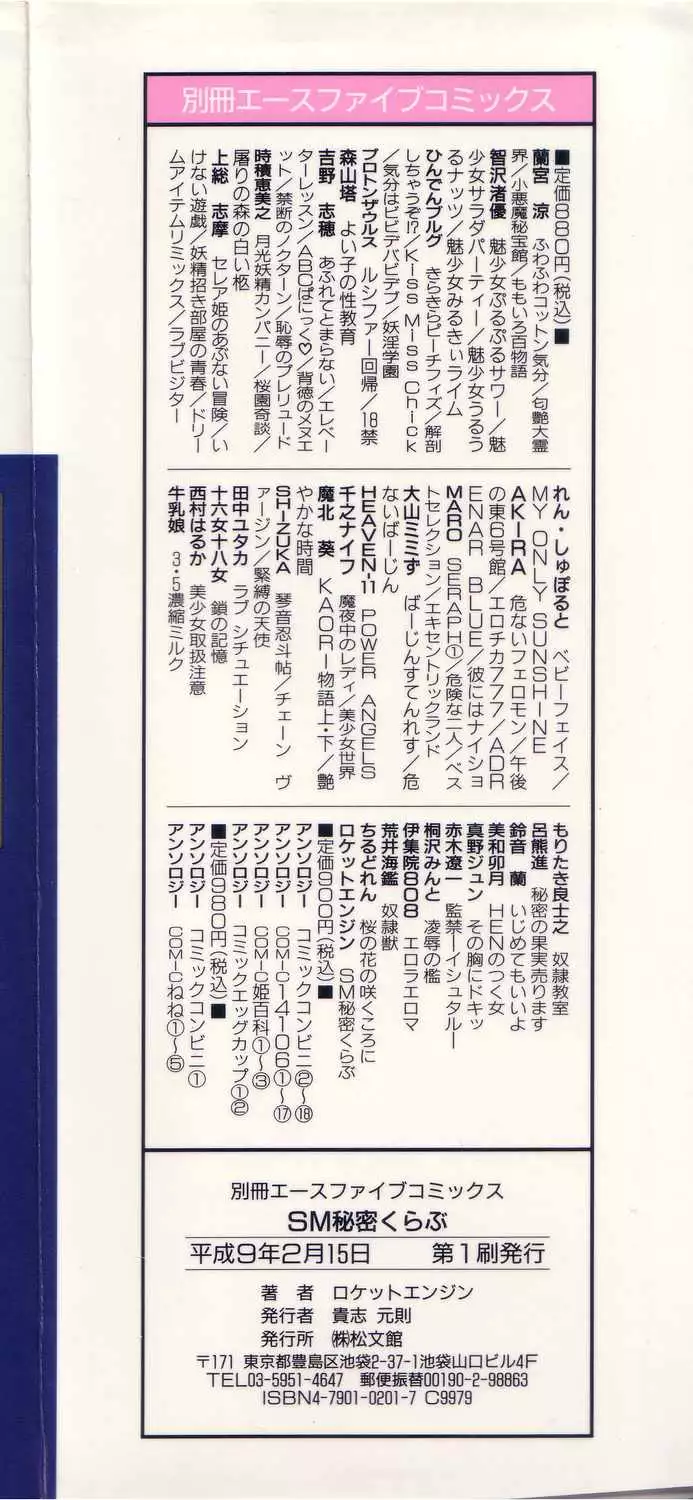 別冊エースファイブコミックス
■定価880円(税込)■
蘭宮 涼 ふわふわコットン気分/匂艶大霊
界/小悪魔秘宝館/ももいろ百物語
智沢渚優 魅少女ぷるぷるサワー/魅
少女サラダパーティー/魅少女うるう
るナッツ/魅少女みるきぃライム
ひんでんブルグ きらきらピーチフィズ/解剖
しちゃうぞ!?/Kiss Miss Chick
/気分はビビデバビデブ/妖淫学園
プロトンザウルス ルシファー回帰/18禁
森山塔 よい子の性教育
吉野 志穂 あふれてとまらない/エレベー
ターレッスン/ABCぱにっく♡/背徳のメヌエ
ット/禁断のノクターン/恥辱のプレリュード
時積恵美之 月光妖精カンパニー/桜園奇談/
屠りの森の白い柩
上総 志摩 セレア姫のあぶない冒険/い
けない遊戯/妖精招き部屋の青春/ドリー
ムアイテムリミックス/ラブビジター
れん・しゅぽると ベビーフェイス/
MY ONLY SUNSHINE
AKIRA 危ないフェロモン/午後
の東6号館/エロチカ777/ADR
ENAR BLUE/彼にはナイショ
MARO SERAPH①/危険な二人/ベス
トセレクション/エキセントリックランド
大山ミミず ばーじんすてんれす/危
ないばーじん
HEAVEN-11 POWER ANGELS
千之ナイフ 魔夜中のレディ/美少女世界
魔北 葵 KAORI物語上・下/艶
やかな時間
SHIZUKA 琴音忍斗帖/チェーン ヴ
ァージン/緊縛の天使
田中ユタカ ラブ シチュエーション
十六女十八女 鎖の記憶
西村はるか 美少女取扱注意
牛乳娘 3・5濃縮ミルク
もりたき良士之 奴隷教室
呂熊進 秘密の果実売ります
鈴音 蘭 いじめてもいいよ
美和卯月 HENのつく女
真野ジュン その胸にドキッ
赤木遼一 監禁―イシュタル―
桐沢みんと 凌辱の檻
伊集院808 エロラエロマ
荒井海鑑 奴隷獣
ちるどれん 桜の花の咲くころに
ロケットエンジン SM秘密くらぶ
■定価900円(税込)■
アンソロジー コミックコンビニ②〜⑱
アンソロジー COMIC14106①〜⑰
アンソロジー COMIC姫百科①〜③
アンソロジー コミックエッグカップ①②
■定価980円(税込)■
アンソロジー コミックコンビニ①
アンソロジー COMICねね①〜⑤
別冊エースファイブコミックス
SM秘密くらぶ
平成9年2月15日 第1刷発行
著 者 ロケットエンジン
発行者 貴志 元則
発行所 ㈱松文館
〒171 東京都豊島区池袋2-37-1池袋山口ビル4F
TEL03-5951-4647 郵便振替00190-2-98863
ISBN4-7901-0201-7 C9979